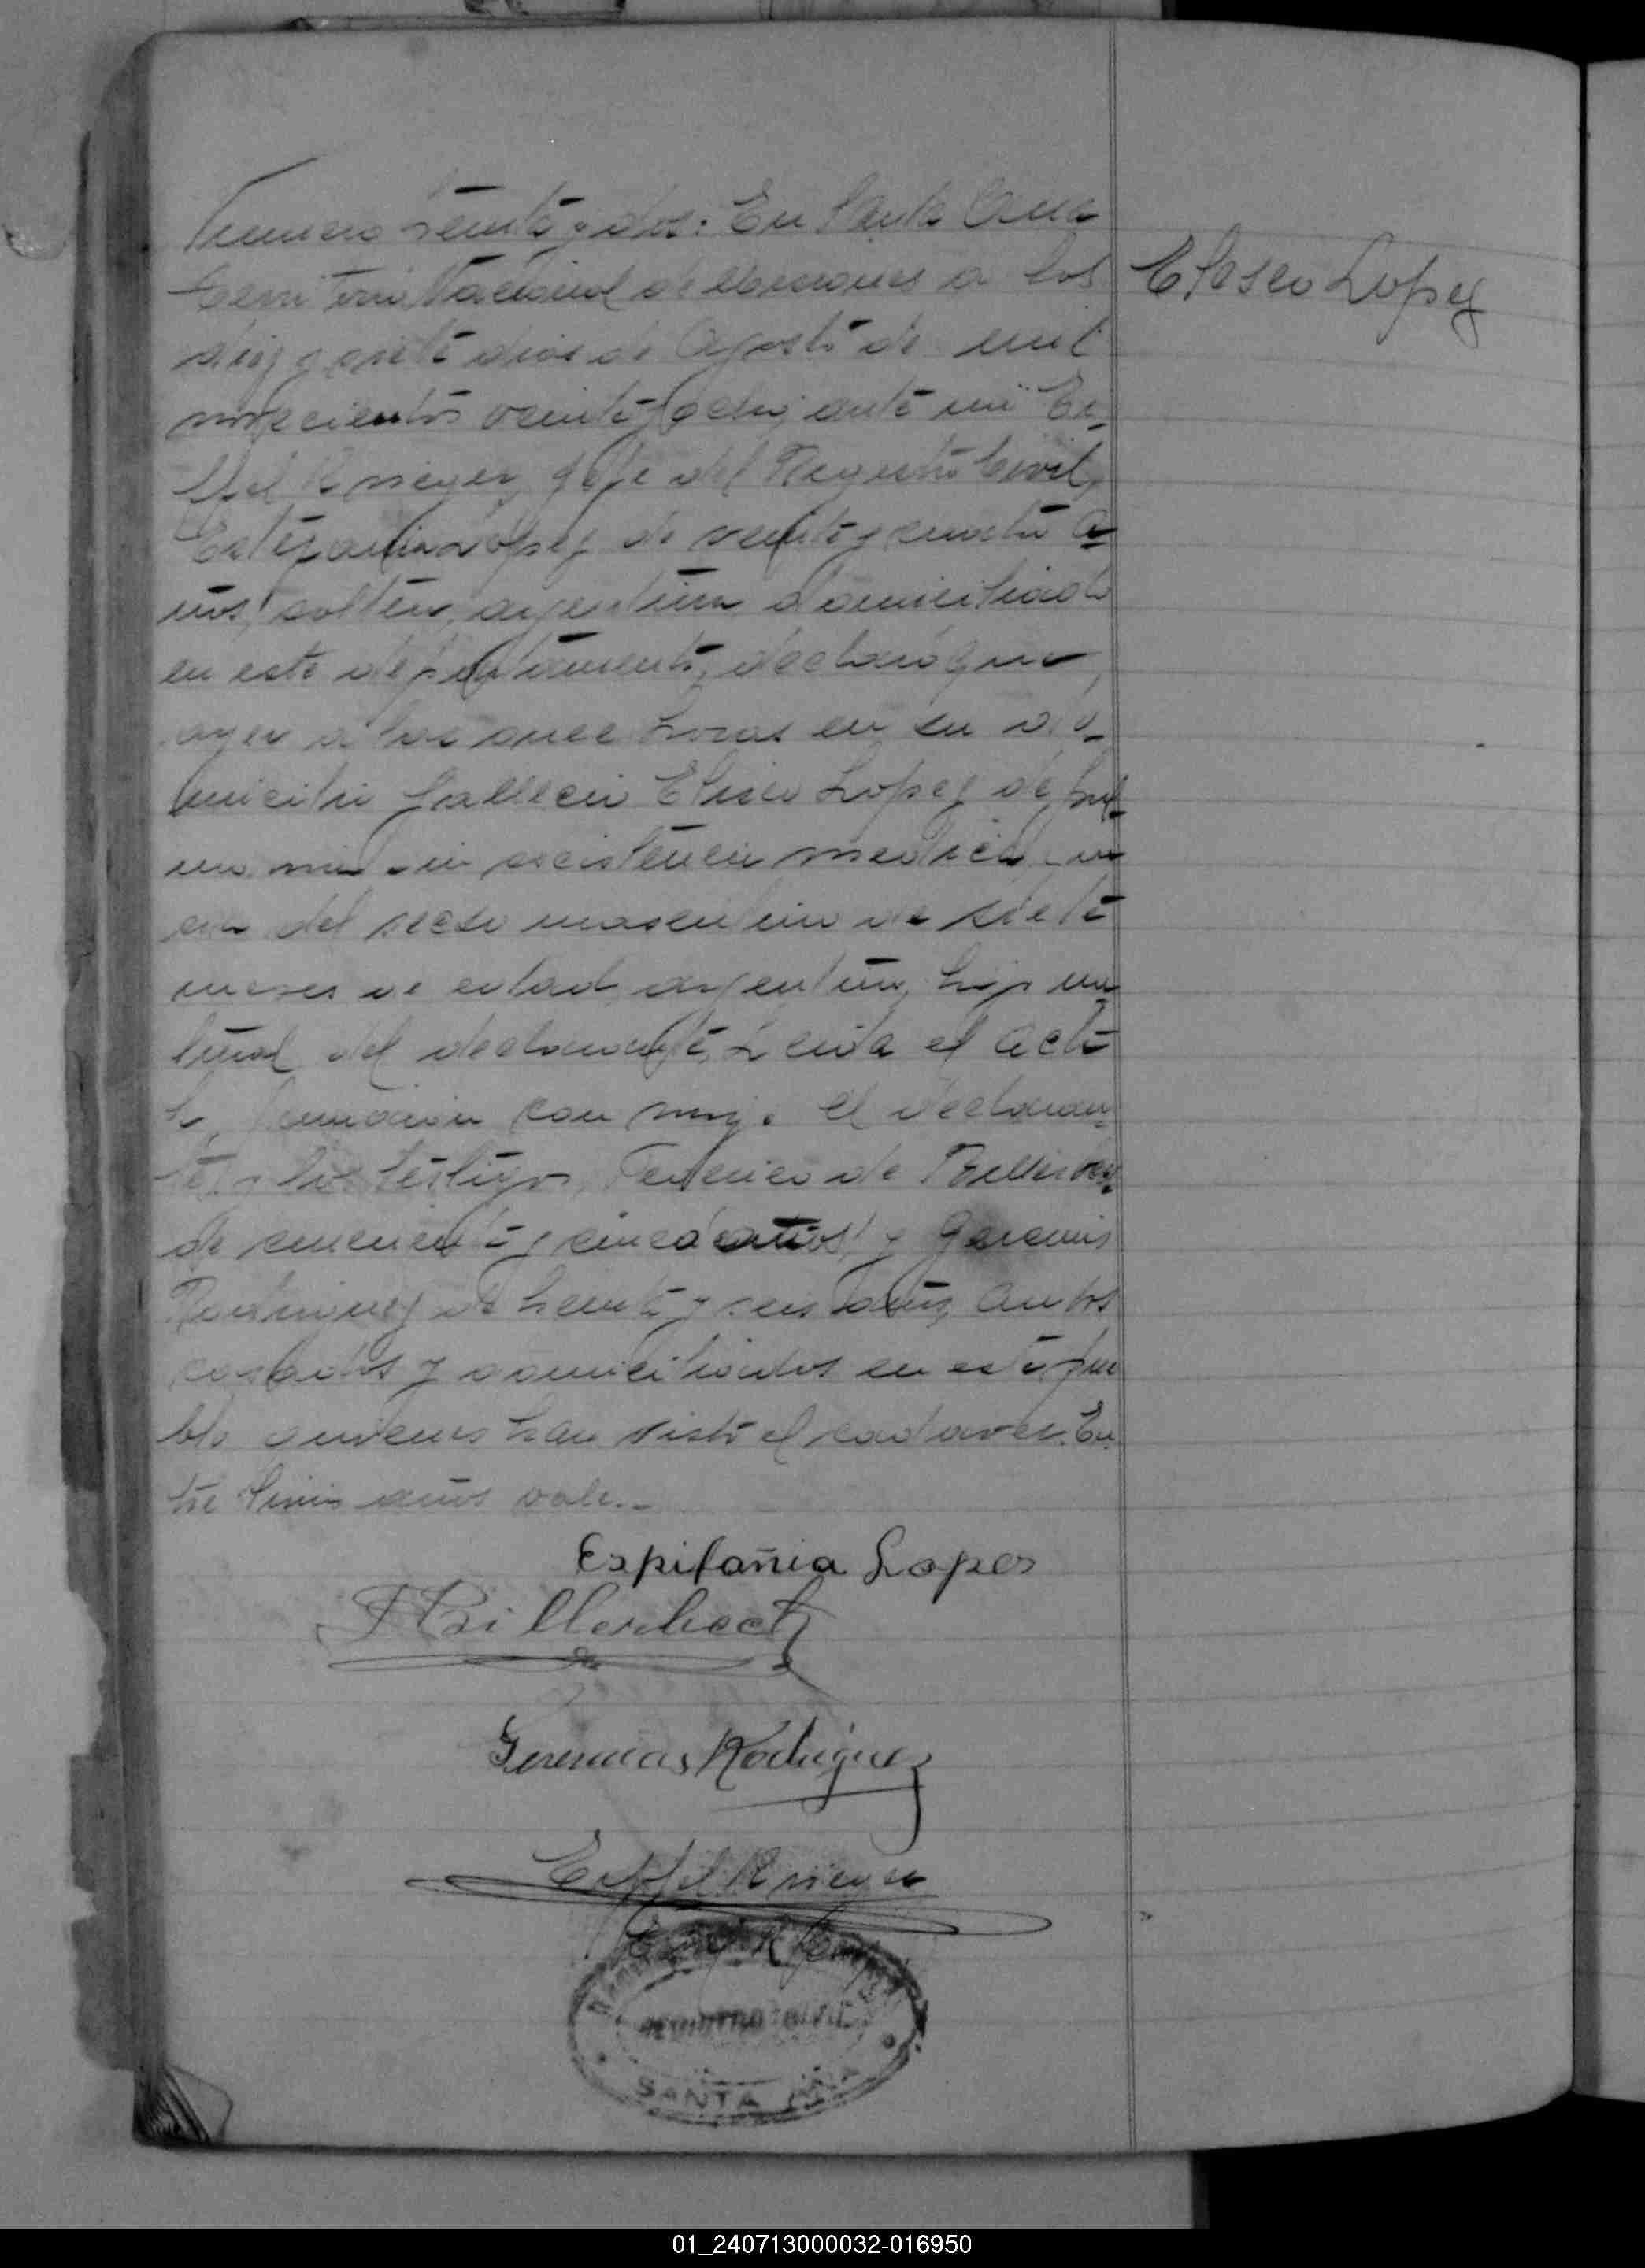 Numero veinte y dos: En Santa Ana
Territorio Nacional de Misiones a los
diez y siete dias de Agosto de mil
novecientos veinte y ocho, ante mi Ei_
ffel Krieger, Jefe del Registro Civil,
Lopez de veinte y cuatro a_
ños, soltero, argentino domiciliado
en este departamento, declaró que
ayer a las once horas en su do_
micilio fallecio Eliseo Lopez de pul_
sin asistencia medica,
era del sexo masculino de siete
meses de edad, argentino, hijo na_
tural del declarante. Leida el acta
la firmaron con migo el declaran_
te y los testigos, Federico de
de cincuenta y cinco años y Geremias
Rodriguez de treinta y seis años, ambos
casados y domiciliados en este pue
blo quienes han visto el cadaver. En_
tre linia años vale._
Eliseo Lopez
Espifañia Lopes
Geremias Rodriguez
Eiffel Krieger
REGISTRO CIVIL
SANTA ANA
01_240713000032-016950